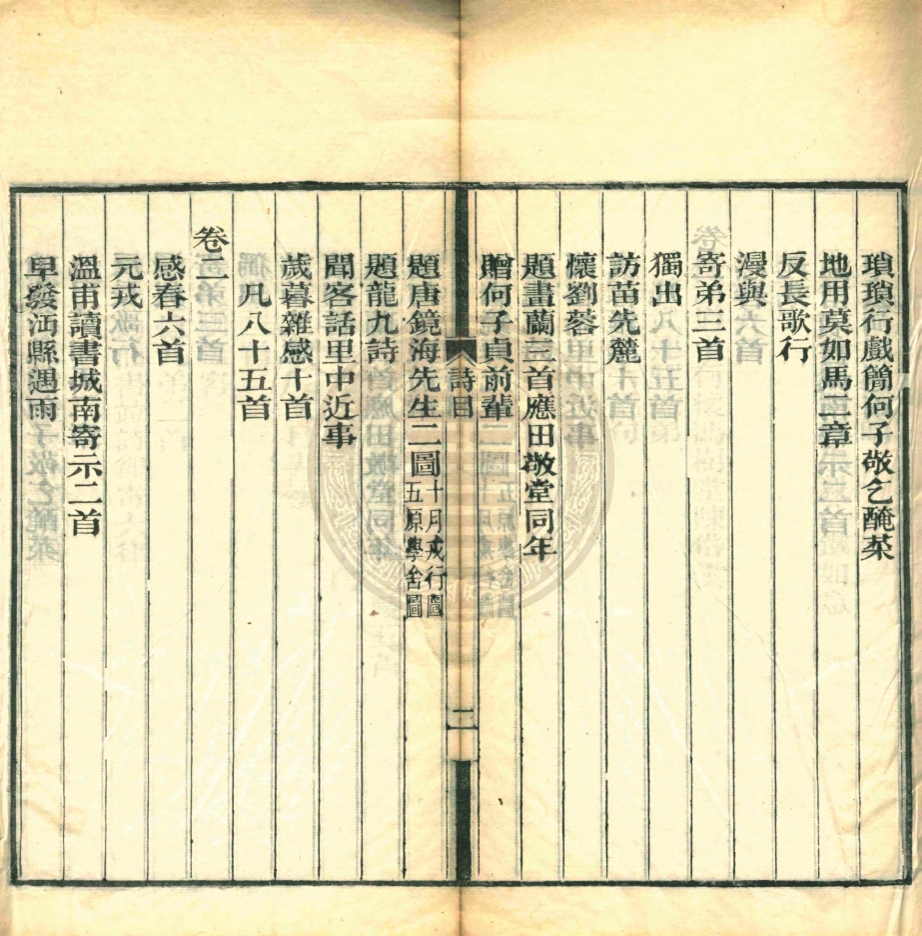 瑣瑣行戲簡何子敬乞醃菜
地用莫如馬二章
反長歌行
漫與
寄弟三首
獨出
訪苗先麓
懷劉蓉
題畫蘭三首應田敬堂同年
贈何子貞前輩
詩目
二
題唐鏡海先生二圖十月戎行圖五原學舍圖
題龍九詩
聞客話里中近事
歲暮雜感十首
凡八十五首
卷二
感春六首
元戎
溫甫讀書城南寄示二首
早發沔縣遇雨